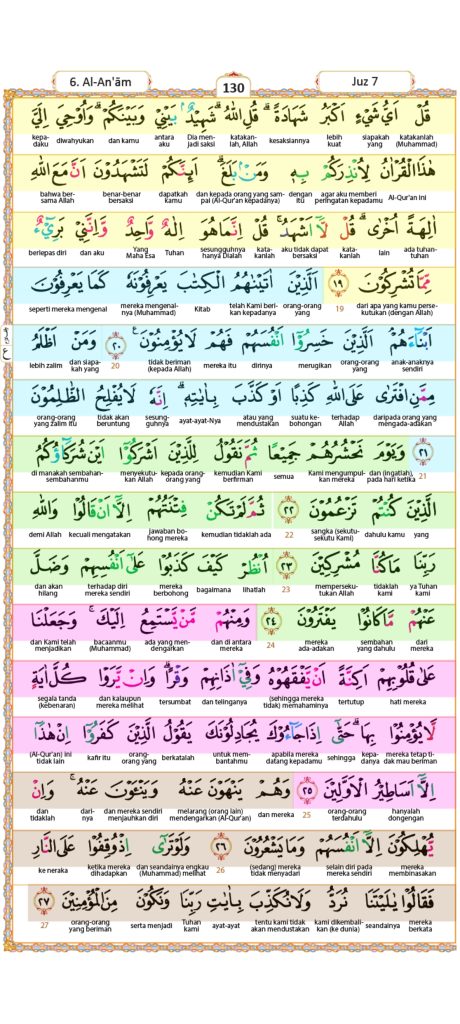 6. Al-An'ām
130
Juz 7
قُلْ اَيُّ شَيْءٍ اَكْبَرُ شَهَادَةً ۗ قُلِ اللّٰهُ ۗ شَهِيْدٌۢ بَيْنِيْ وَبَيْنَكُمْ ۗ وَاُوْحِيَ اِلَيَّ
katakanlah (Muhammad) siapakah yang lebih kuat kesaksiannya katakanlah, Allah Dia menjadi saksi antara aku dan kamu diwahyukan kepadaku
هٰذَا الْقُرْاٰنُ لِاُنْذِرَكُمْ بِهٖ وَمَنْۢ بَلَغَ ۗ اَىِٕنَّكُمْ لَتَشْهَدُوْنَ اَنَّ مَعَ اللّٰهِ
Al-Qur'an ini agar aku memberi peringatan kepadamu dengan itu dan kepada orang yang sampai (Al-Qur'an kepadanya) dapatkah kamu benar-benar bersaksi bahwa bersama Allah
اٰلِهَةً اُخْرٰى ۗ قُلْ لَّآ اَشْهَدُ ۚ قُلْ اِنَّمَا هُوَ اِلٰهٌ وَّاحِدٌ وَّاِنَّنِيْ بَرِيْۤءٌ
ada tuhan-tuhan lain katakanlah aku tidak dapat bersaksi katakanlah sesungguhnya hanya Dialah Tuhan Yang Maha Esa dan aku berlepas diri
مِّمَّا تُشْرِكُوْنَ ١٩ اَلَّذِيْنَ اٰتَيْنٰهُمُ الْكِتٰبَ يَعْرِفُوْنَهٗ كَمَا يَعْرِفُوْنَ
dari apa yang kamu persekutukan (dengan Allah) 19 orang-orang yang telah Kami berikan kepadanya Kitab mereka mengenalnya (Muhammad) seperti mereka mengenal
اَبْنَاۤءَهُمْ ۘ اَلَّذِيْنَ خَسِرُوْٓا اَنْفُسَهُمْ فَهُمْ لَا يُؤْمِنُوْنَ ٢٠ وَمَنْ اَظْلَمُ
anak-anaknya sendiri orang-orang yang merugikan dirinya mereka itu tidak beriman (kepada Allah) 20 dan siapakah yang lebih zalim
مِمَّنِ افْتَرٰى عَلَى اللّٰهِ كَذِبًا اَوْ كَذَّبَ بِاٰيٰتِهٖ ۗ اِنَّهٗ لَا يُفْلِحُ الظّٰلِمُوْنَ
daripada orang yang mengada-adakan terhadap Allah suatu kebohongan atau yang mendustakan ayat-ayat-Nya sesungguhnya tidak akan beruntung orang-orang yang zalim itu
٢١ وَيَوْمَ نَحْشُرُهُمْ جَمِيْعًا ثُمَّ نَقُوْلُ لِلَّذِيْنَ اَشْرَكُوْٓا اَيْنَ شُرَكَاۤؤُكُمُ
21 dan (ingatlah), pada hari ketika Kami mengumpulkan mereka semua kemudian Kami berfirman kepada orang-orang yang menyekutukan Allah di manakah sembahan-sembahanmu
الَّذِيْنَ كُنْتُمْ تَزْعُمُوْنَ ٢٢ ثُمَّ لَمْ تَكُنْ فِتْنَتُهُمْ اِلَّآ اَنْ قَالُوْا وَاللّٰهِ
yang dahulu kamu sangka (sekutu-sekutu Kami) 22 kemudian tidaklah ada jawaban bohong mereka kecuali mengatakan demi Allah
رَبِّنَا مَا كُنَّا مُشْرِكِيْنَ ٢٣ اُنْظُرْ كَيْفَ كَذَبُوْا عَلٰٓى اَنْفُسِهِمْ وَضَلَّ
ya Tuhan Kami tidaklah kami mempersekutukan Allah 23 lihatlah bagaimana mereka berbohong terhadap diri mereka sendiri dan akan hilang
عَنْهُمْ مَّا كَانُوْا يَفْتَرُوْنَ ٢٤ وَمِنْهُمْ مَّنْ يَّسْتَمِعُ اِلَيْكَ ۚ وَجَعَلْنَا
dari mereka sembahan yang dahulu mereka ada-adakan 24 dan di antara mereka ada yang mendengarkan bacaanmu (Muhammad) dan Kami telah menjadikan
عَلٰى قُلُوْبِهِمْ اَكِنَّةً اَنْ يَّفْقَهُوْهُ وَفِيْٓ اٰذَانِهِمْ وَقْرًا ۗ وَاِنْ يَّرَوْا كُلَّ اٰيَةٍ
hati mereka tertutup (sehingga mereka tidak) memahaminya dan telinganya tersumbat dan kalaupun mereka melihat segala tanda (kebenaran)
لَّا يُؤْمِنُوْا بِهَا ۗ حَتّٰٓى اِذَا جَاۤءُوْكَ يُجَادِلُوْنَكَ يَقُوْلُ الَّذِيْنَ كَفَرُوْٓا اِنْ هٰذَآ
mereka tetap tidak mau beriman kepadanya sehingga apabila mereka datang kepadamu untuk membantahmu berkatalah orang-orang yang kafir itu (Al-Qur'an) ini tidak lain
اِلَّآ اَسَاطِيْرُ الْاَوَّلِيْنَ ٢٥ وَهُمْ يَنْهَوْنَ عَنْهُ وَيَنْـَٔوْنَ عَنْهُ ۚ وَاِنْ
hanyalah dongengan orang-orang terdahulu 25 dan mereka melarang (orang lain) mendengarkan (Al-Qur'an) dan mereka sendiri menjauhkan diri darinya dan tidaklah
يُّهْلِكُوْنَ اِلَّآ اَنْفُسَهُمْ وَمَا يَشْعُرُوْنَ ٢٦ وَلَوْ تَرٰٓى اِذْ وُقِفُوْا عَلَى النَّارِ
mereka membinasakan selain diri pada mereka sendiri (sedang) mereka tidak menyadari 26 dan seandainya engkau (Muhammad) melihat ketika mereka dihadapkan ke neraka
فَقَالُوْا يٰلَيْتَنَا نُرَدُّ وَلَا نُكَذِّبَ بِاٰيٰتِ رَبِّنَا وَنَكُوْنَ مِنَ الْمُؤْمِنِيْنَ ٢٧
mereka berkata seandainya kami dikembalikan (ke dunia) tentu kami tidak akan mendustakan ayat-ayat Tuhan kami serta menjadi orang-orang yang beriman 27